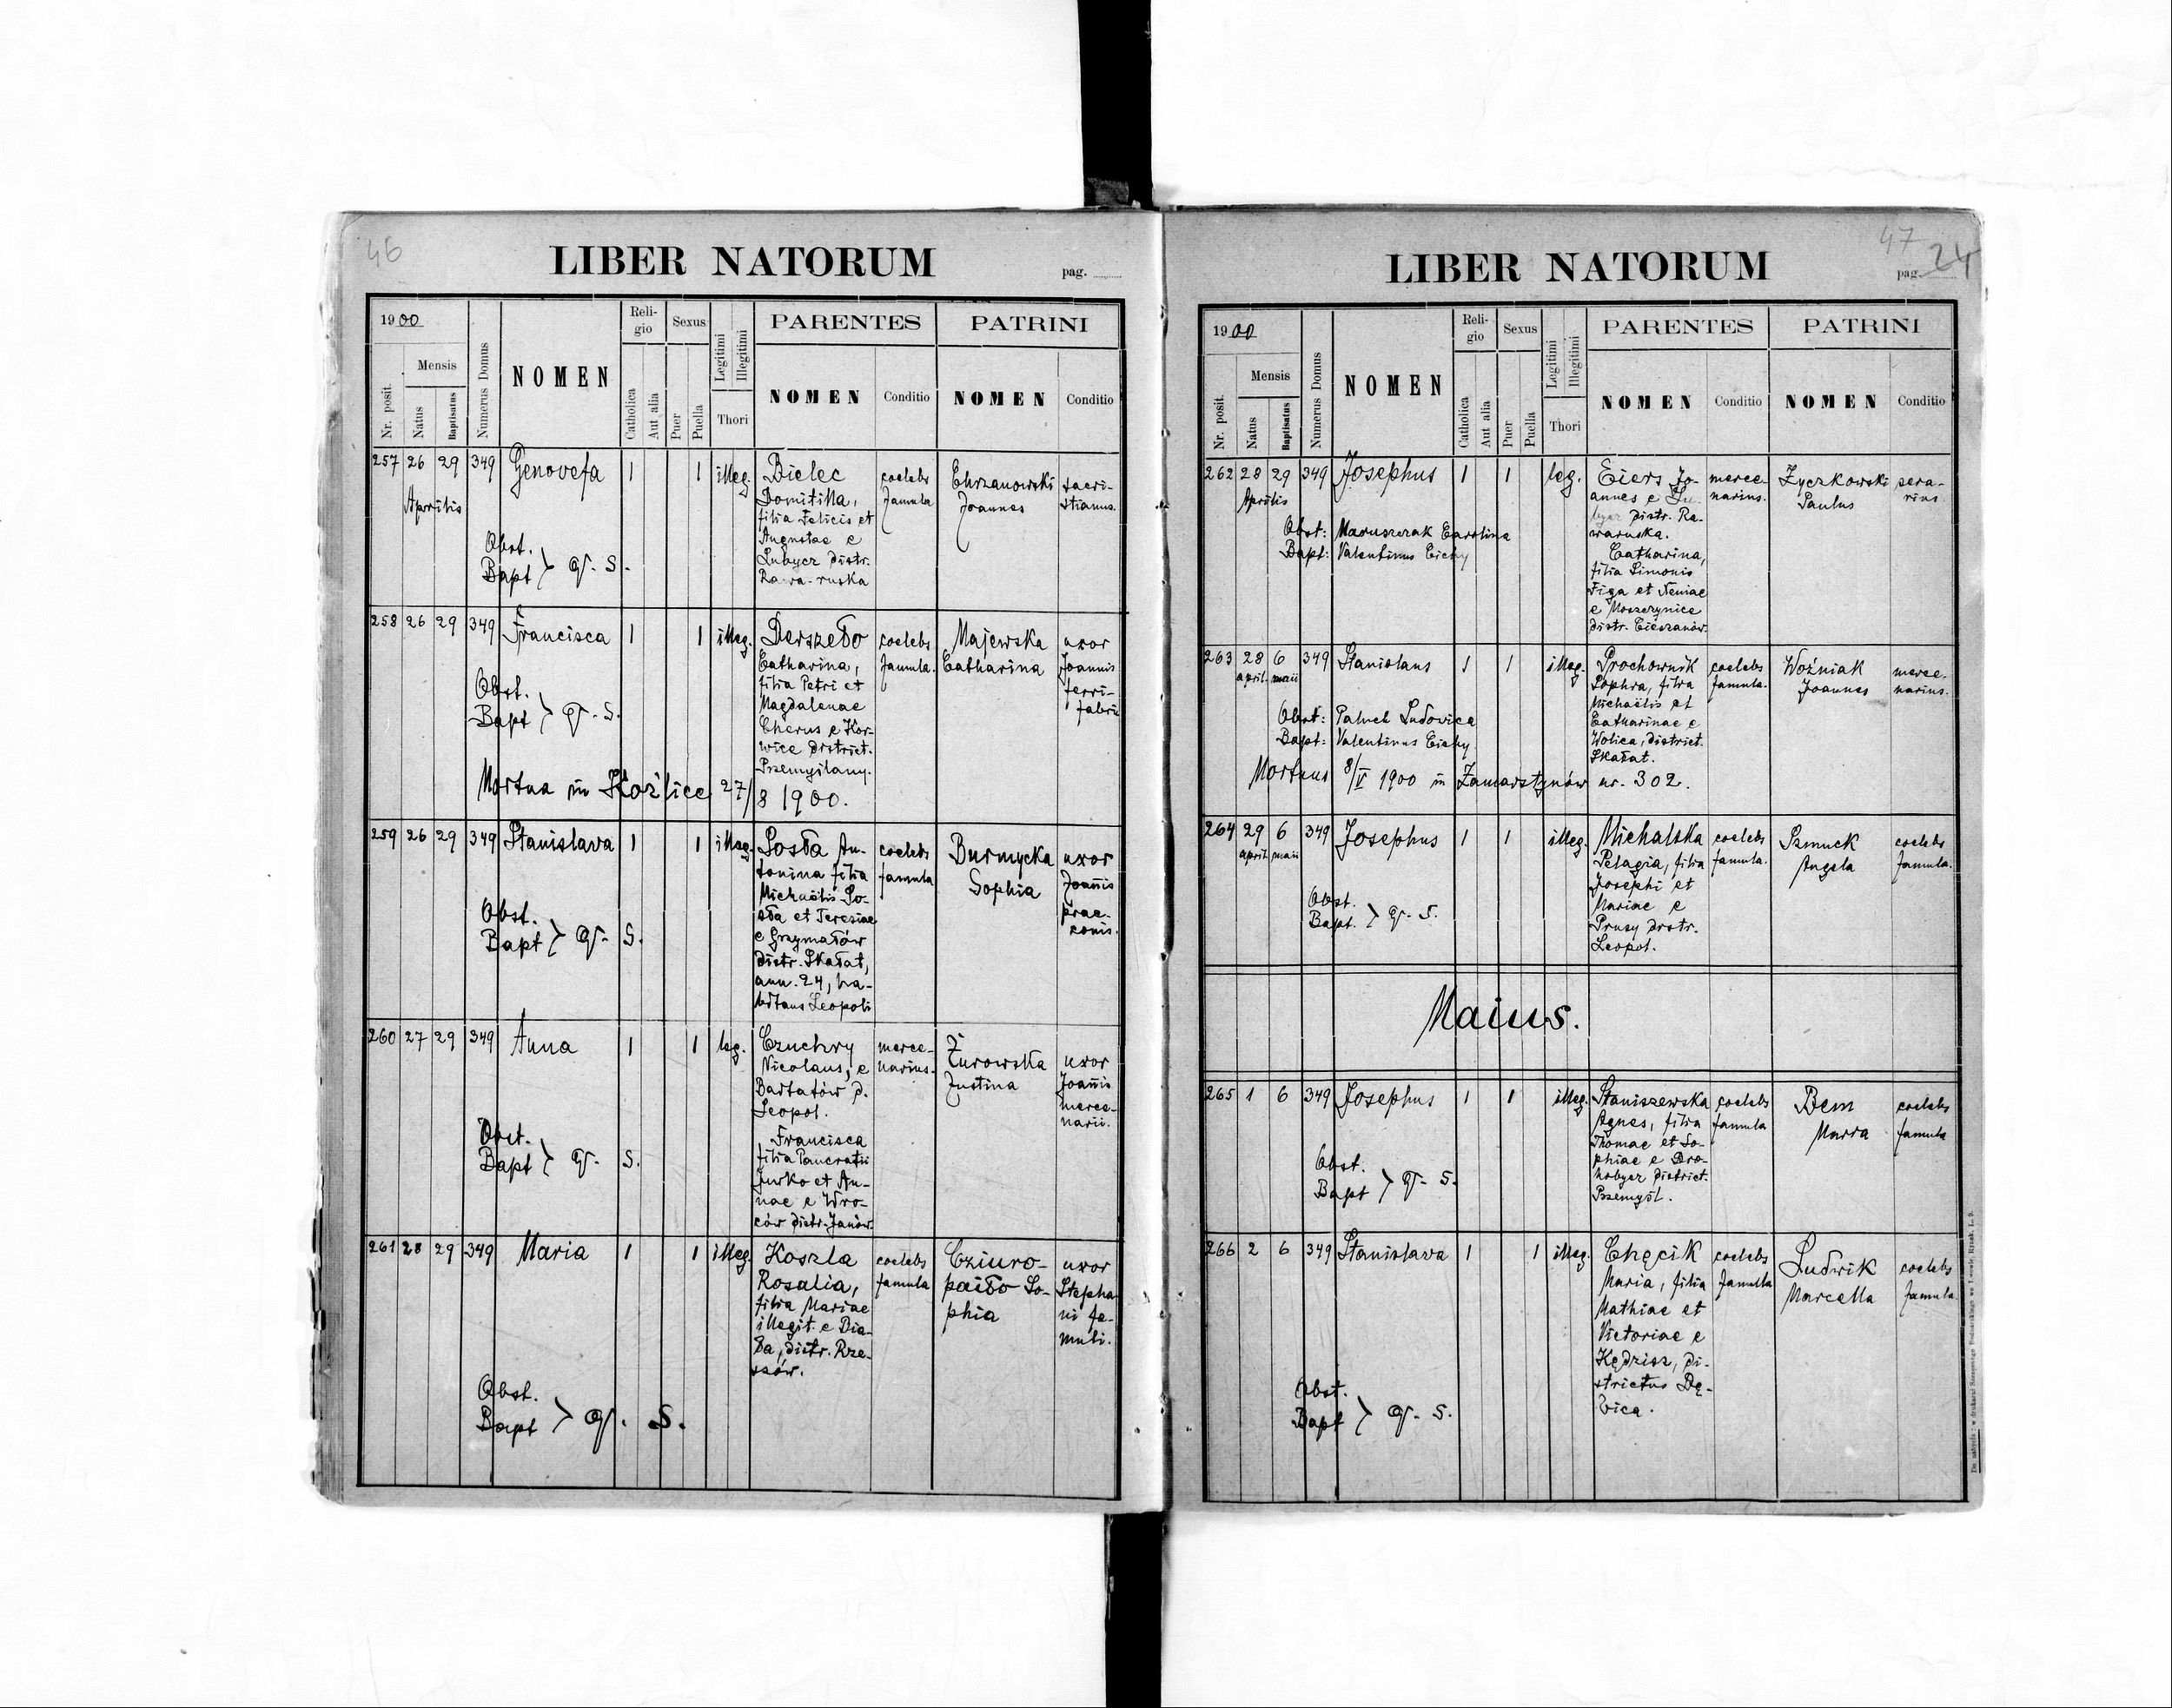 46
LIBER NATORUM
pag.
1900
Nr. posit.
Mensis
Natus
Baptisatus
Numerus Domus
NOMEN
Reli-
gio
Catholica
Aut alia
Sexus
Puer
Puella
Legitimi
Illegitimi
Thori
PARENTES
NOMEN
Conditio
PATRINI
NOMEN
Conditio
257 26 29 349 Genovefa 1 1 illeg.
Aprilis
Bielec
Domitilla,
filia Felicis et
Augustae e
Lubycz distr.
Rawa-ruska
coelebs
famula
Chrzanowski
Joannes
sacri-
stianus.
Obst.
Bapt } q. s.
258 26 29 349 Francisca 1 1 illeg.
Derszeło
Catharina,
filia Petri et
Magdalenae
Cherus e Kor-
wice district.
Przemyślany.
coelebs
famula.
Majewska
Catharina
uxor
Joannis
ferri-
fabri
Obst.
Bapt } q. s.
Mortua in Kozlice 27/8 1900.
259 26 29 349 Stanislava 1 1 illeg.
Sosła An-
tonina filia
Michaëlis So-
sła et Teresiae
e Grzymałów
distr. Skałat,
ann. 24, ha-
bitans Leopoli
coelebs
famula
Burnycka
Sophia
uxor
Joañis
prae-
conis.
Obst.
Bapt } q. s.
260 27 29 349 Anna 1 1 leg.
Czuchry
Nicolaus, e
Bartatów d.
Leopol.
Francisca
filia Pancratii
Jurko et An-
nae e Wro-
ców distr. Janów.
merce-
narius.
Żurowska
Justina
uxor
Joañis
merce-
narii.
Obst.
Bapt } q. s.
261 28 29 349 Maria 1 1 illeg.
Koszla
Rosalia,
filia Mariae
illegit. e Bia-
ła, distr. Rze-
szów.
coelebs
famula
Cziuro-
paiło So-
phia
uxor
Stepha-
ni fa-
muli.
Obst.
Bapt } q. s.
47
LIBER NATORUM
pag. 24
1900
Nr. posit.
Mensis
Natus
Baptisatus
Numerus Domus
NOMEN
Reli-
gio
Catholica
Aut alia
Sexus
Puer
Puella
Legitimi
Illegitimi
Thori
PARENTES
NOMEN
Conditio
PATRINI
NOMEN
Conditio
262 28 29 349 Josephus 1 1 leg.
Aprilis
Eiers Jo-
annes e Lu-
bycz distr. Ra-
waruska.
Catharina,
filia Simonis
Figa et Xeniae
e Moszczynice
distr. Cieszanów.
merce-
narius.
Życzkowski
Paulus
pera-
rius.
Obst: Maruszczak Carolina
Bapt: Valentinus Cichy
263 28 6 349 Stanislaus 1 1 illeg.
april. maii
Prochownik
Sophia, filia
Michaëlis et
Catharinae e
Wolica, district.
Skałat.
coelebs
famula.
Woźniak
Joannes
merce-
narius.
Obst: Paluch Ludovica
Bapt: Valentinus Cichy
Mortuus 8/V 1900 in Zamarstynów nr. 302.
264 29 6 349 Josephus 1 1 illeg.
april. maii
Michalska
Pelagia, filia
Josephi et
Mariae e
Prusy distr.
Leopol.
coelebs
famula.
Szmuck
Angela
coelebs
famula.
Obst.
Bapt. } q. s.
Maius.
265 1 6 349 Josephus 1 1 illeg.
Staniszewska
Agnes, filia
Thomae et So-
phiae e Dro-
hobycz district.
Przemyśl.
coelebs
famula
Bem
Maria
coelebs
famula
Obst.
Bapt } q. s.
266 2 6 349 Stanislava 1 1 illeg.
Chęcik
Maria, filia
Mathiae et
Victoriae e
Kędzisz, di-
strictus Dę-
bica.
coelebs
famula
Ludwik
Marcella
coelebs
famula.
Obst.
Bapt } q. s.